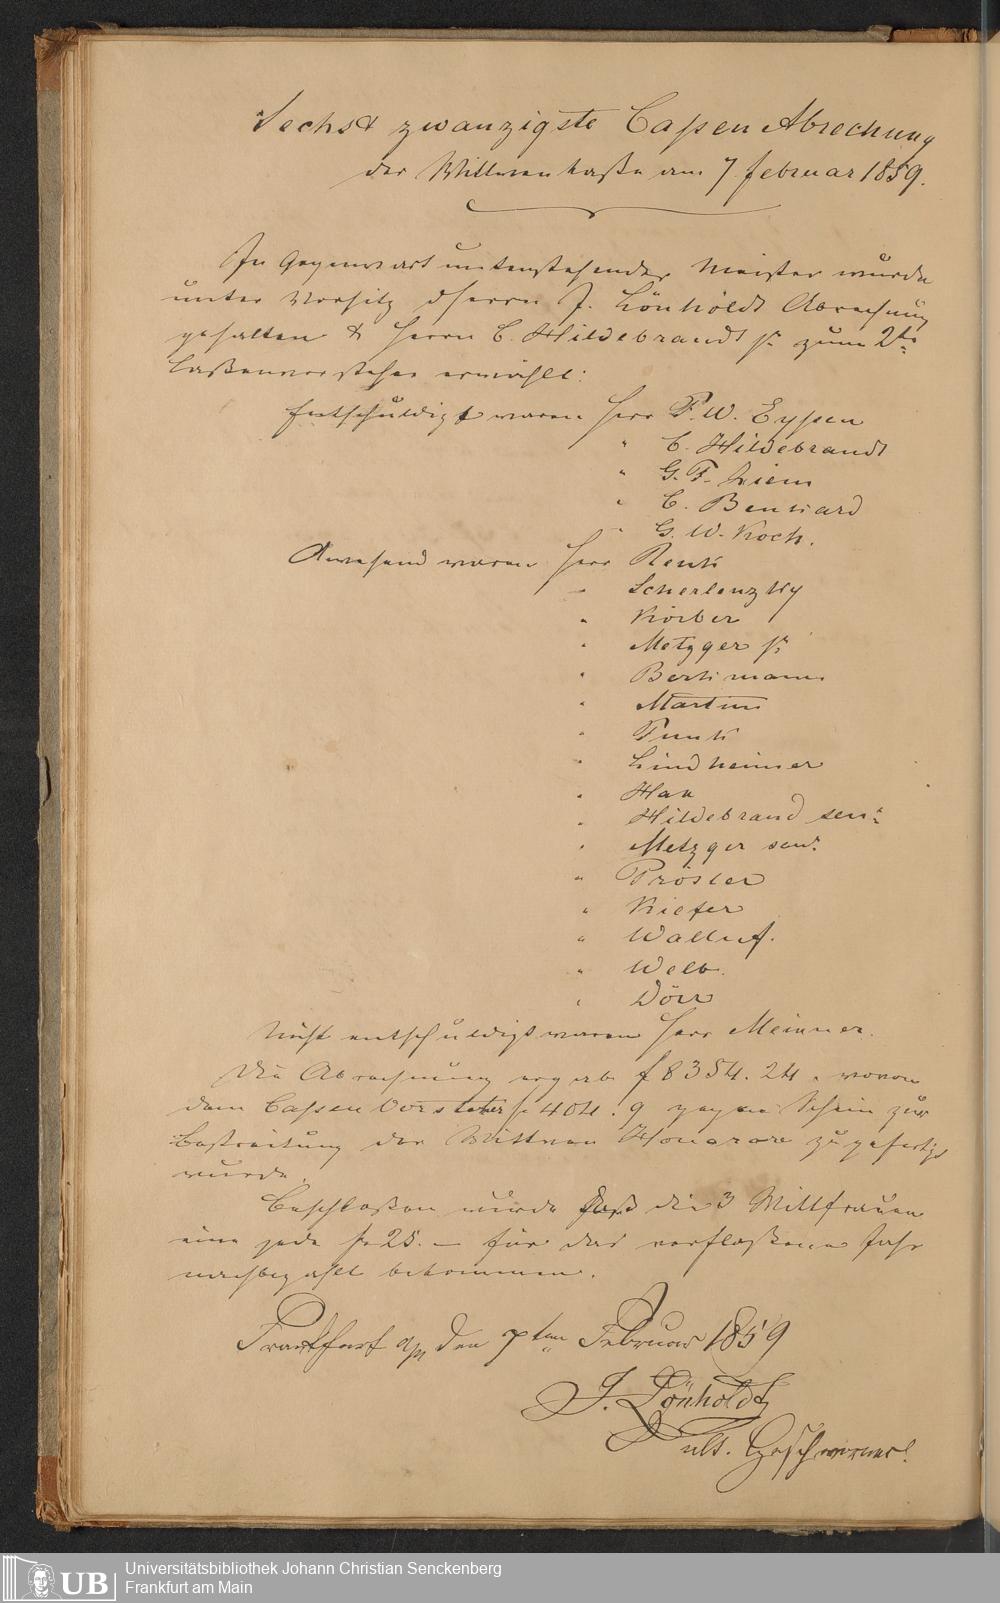 Sechs & zwanzigste Cassen Abrechung
der Wittwenkasse am 7 Februar 1859.
In Gegenwart untenstehender Meister wurde
unter Vorsitz d Herrn J. Lönholdt Abrechnung
gehalten & Herrn C. Hildebrandt jr zum 2te
Cassenvorsteher erwählt:
Entschuldigt waren Herr F. W. Eyssen
" C. Hildebrandt
" G. F. Ziem
" C. Benkard
" G. W. Koch.
Anwesend waren Herr Renk
" Scherlenzky
" Körber
" Metzger jr
" Berkmann
" Martini
" Funk
" Lindheimer
" Hak
" Hildebrand senr
" Metzger senr
" Prösler
" Kiefer
" Walluf.
" Welb.
" Dörr
Nicht entschuldigt waren Herr Meixner.
Die Abrechnung ergab f 8354. 24 " wovon
dem Cassen Vorsteher fr 404. 9 gegen Schein zur
Bestreitung der Wittwen Honorare zugefertigt
wurde.
Beschlossen wurde dass die 3 Wittfrauen
eine jede fr 25. – für das verflossene Jahr
nachbezahlt bekommen.
Frankfurt a/m den 7ten Februar 1859
J. Lönholdt
ält. Geschworner.
Universitätsbibliothek Johann Christian Senckenberg
Frankfurt am Main
UB